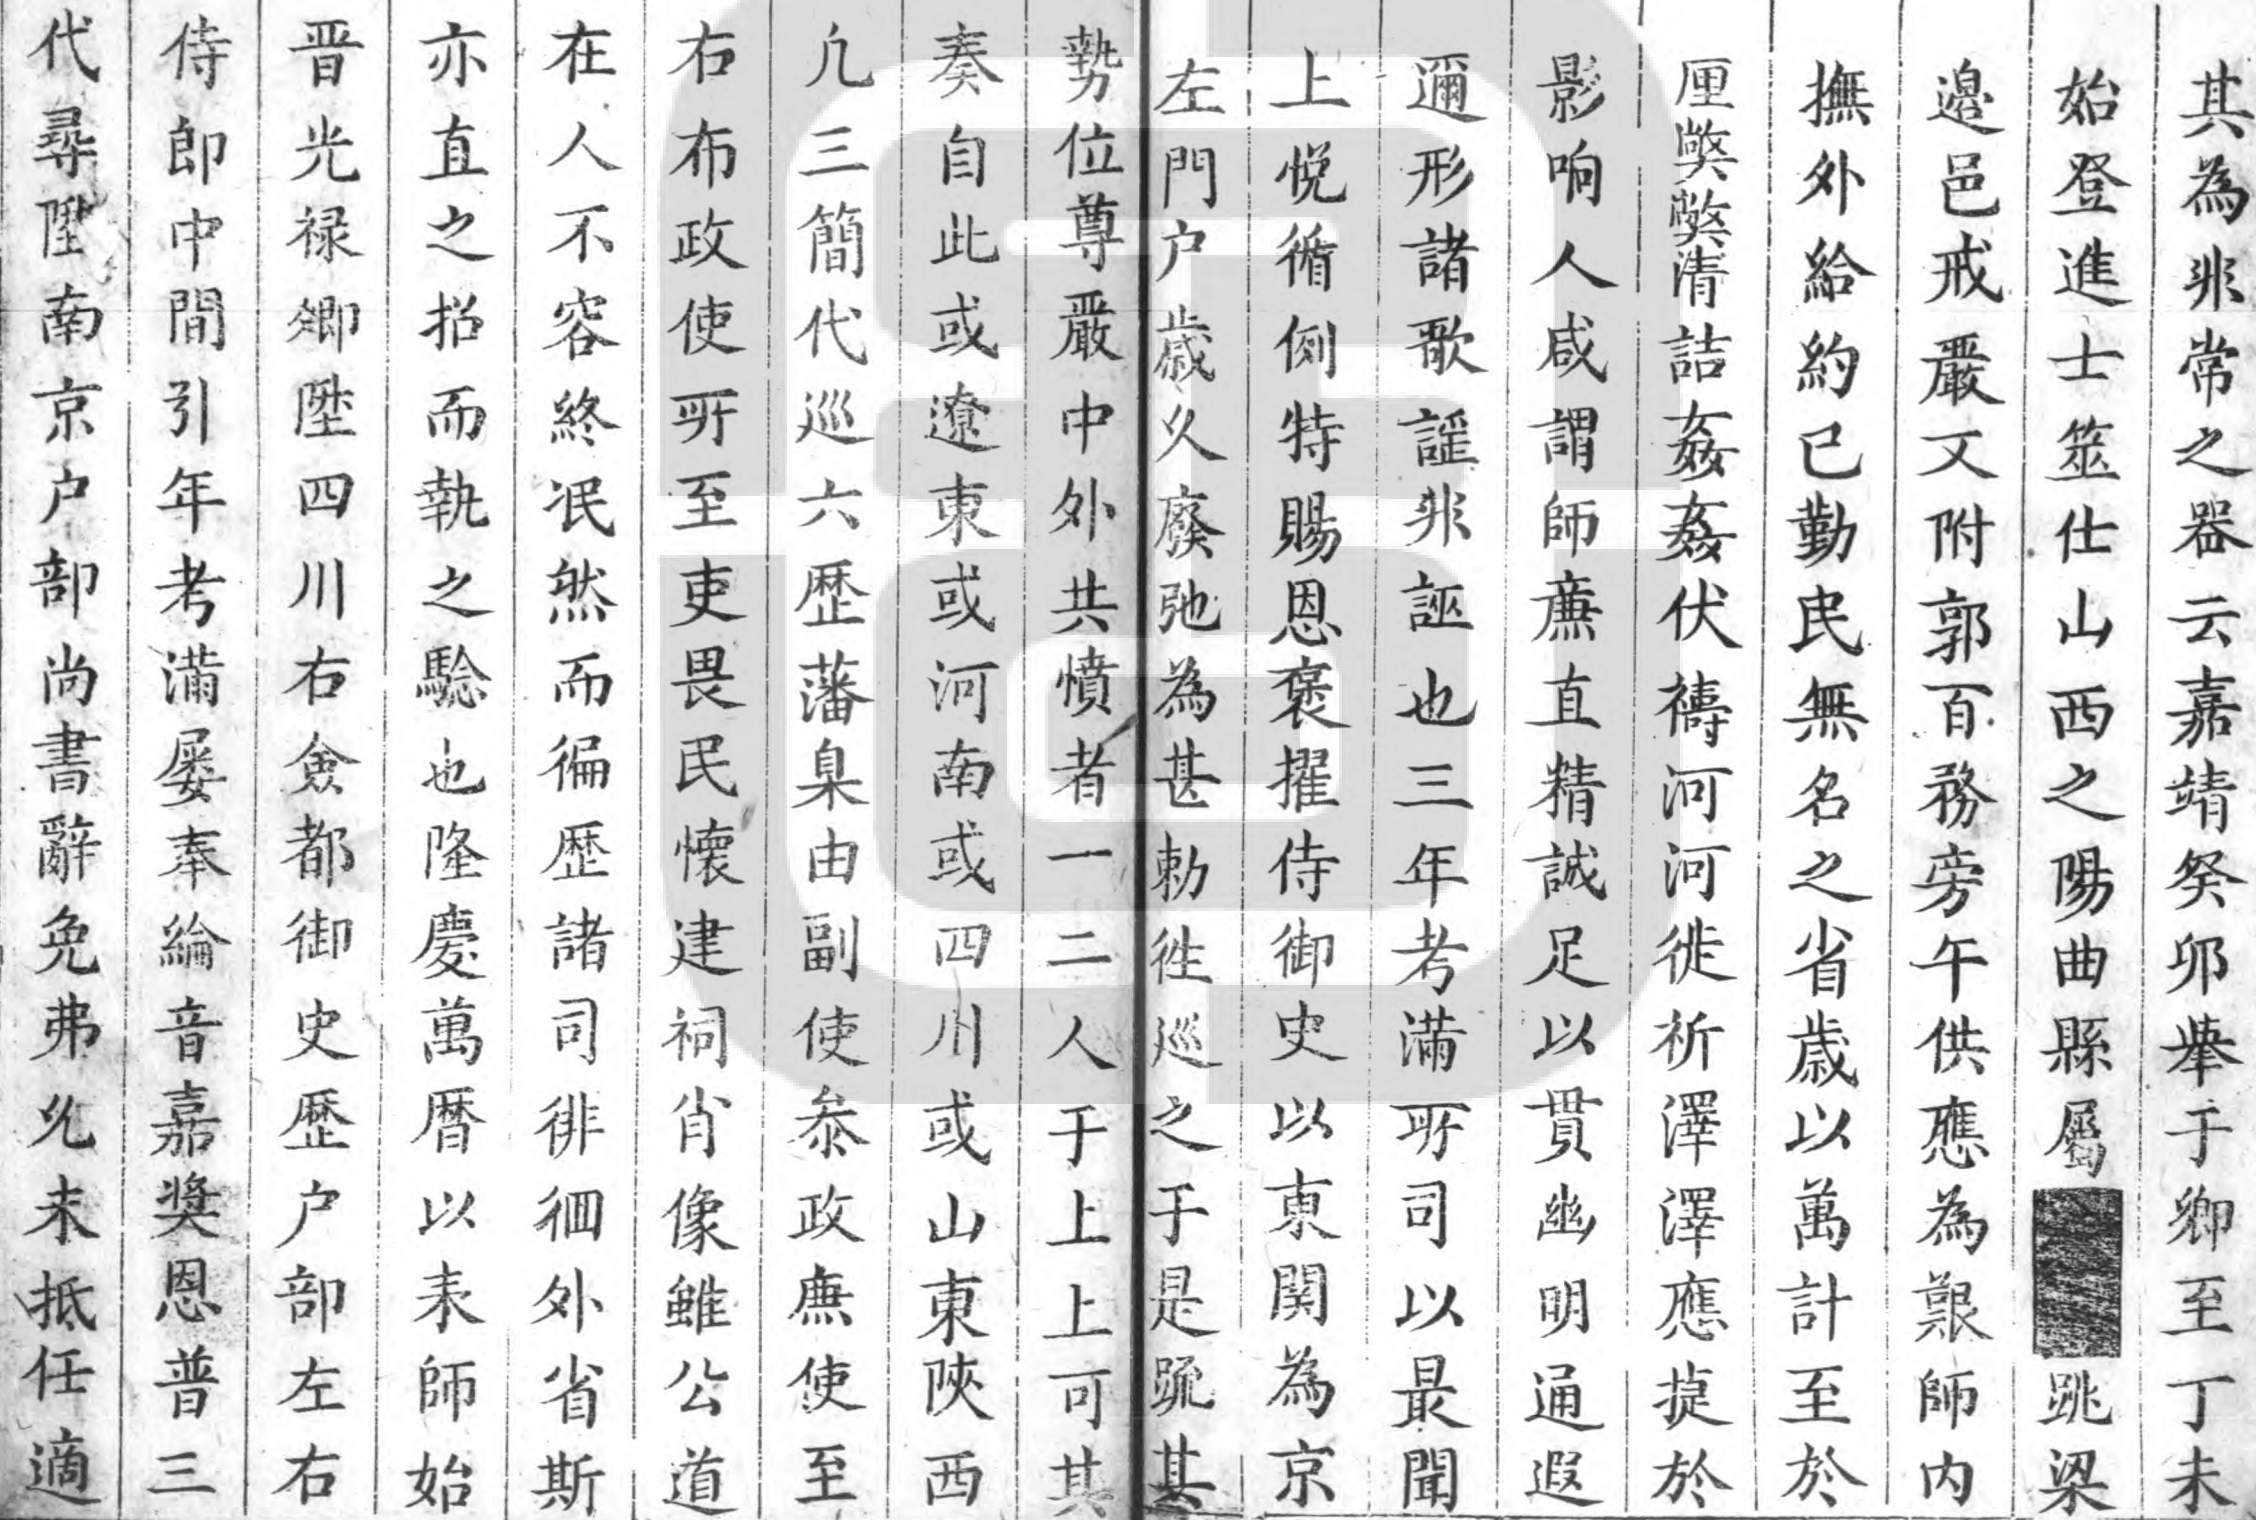 其為非常之器云嘉靖癸卯舉于鄉至丁未
始登進士筮仕山西之陽曲縣屬跳梁
邉邑戒嚴文附郭百務旁午供應為艱師内
撫外給約己勤民無名之省歳以萬計至於
厘獘獘清詰姦姦伏禱河河徙祈澤澤應㨗於
影响人咸謂師亷直精誠足以貫幽明通遐
邇形諸歌謡非誣也三年考滿所司以最聞
上悦循例特賜恩褒擢侍御史以東関為京
左門户歳久廢弛為甚勅徃巡之于是䟽其
勢位尊嚴中外共憤者一二人于上上可其
奏自此或遼東或河南或四川或山東陝西
凢三簡代巡六歴藩臬由副使叅政亷使至
右布政使所至吏畏民懐建祠肖像雖公道
在人不容終泯然而徧歴諸司徘徊外省斯
亦直之招而執之驗也隆慶萬暦以来師始
晋光禄卿陞四川右僉都御史歴户部左右
侍郎中間引年考滿屡奉綸音嘉奬恩普三
代尋陞南京户部尚書辭免弗允未抵任適